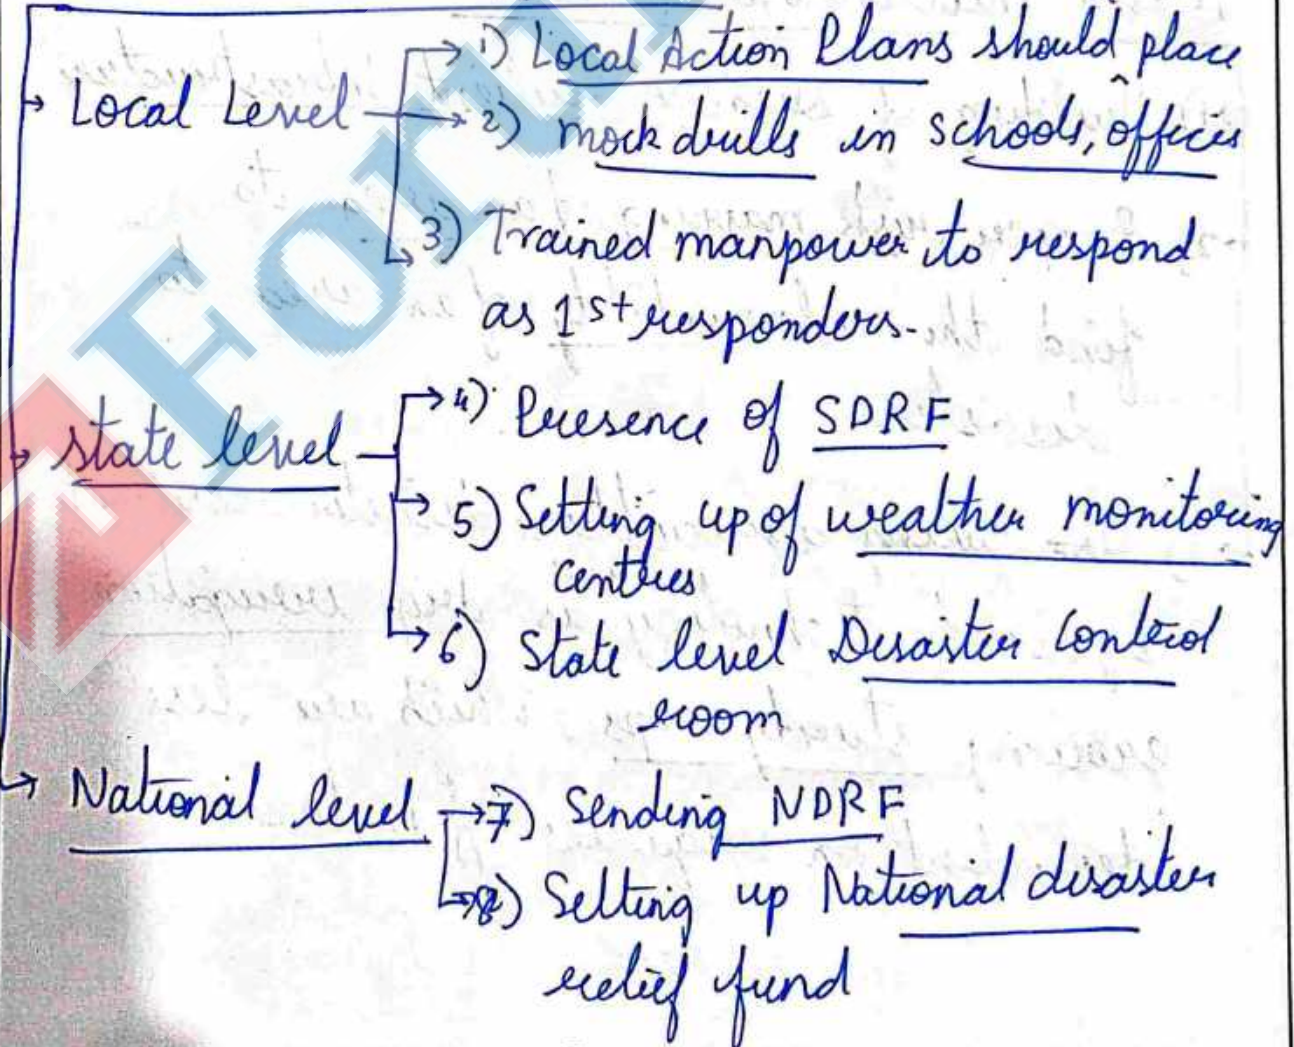 Local Level
1) Local Action Plans should place
2) mock drills in schools, offices
3) Trained manpower to respond
as 1st responders.
State level
4) Presence of SDRF
5) Setting up of weather monitoring
centres
6) State level Disaster Control
room
National level
7) Sending NDRF
8) Setting up National disaster
relief fund
Foru